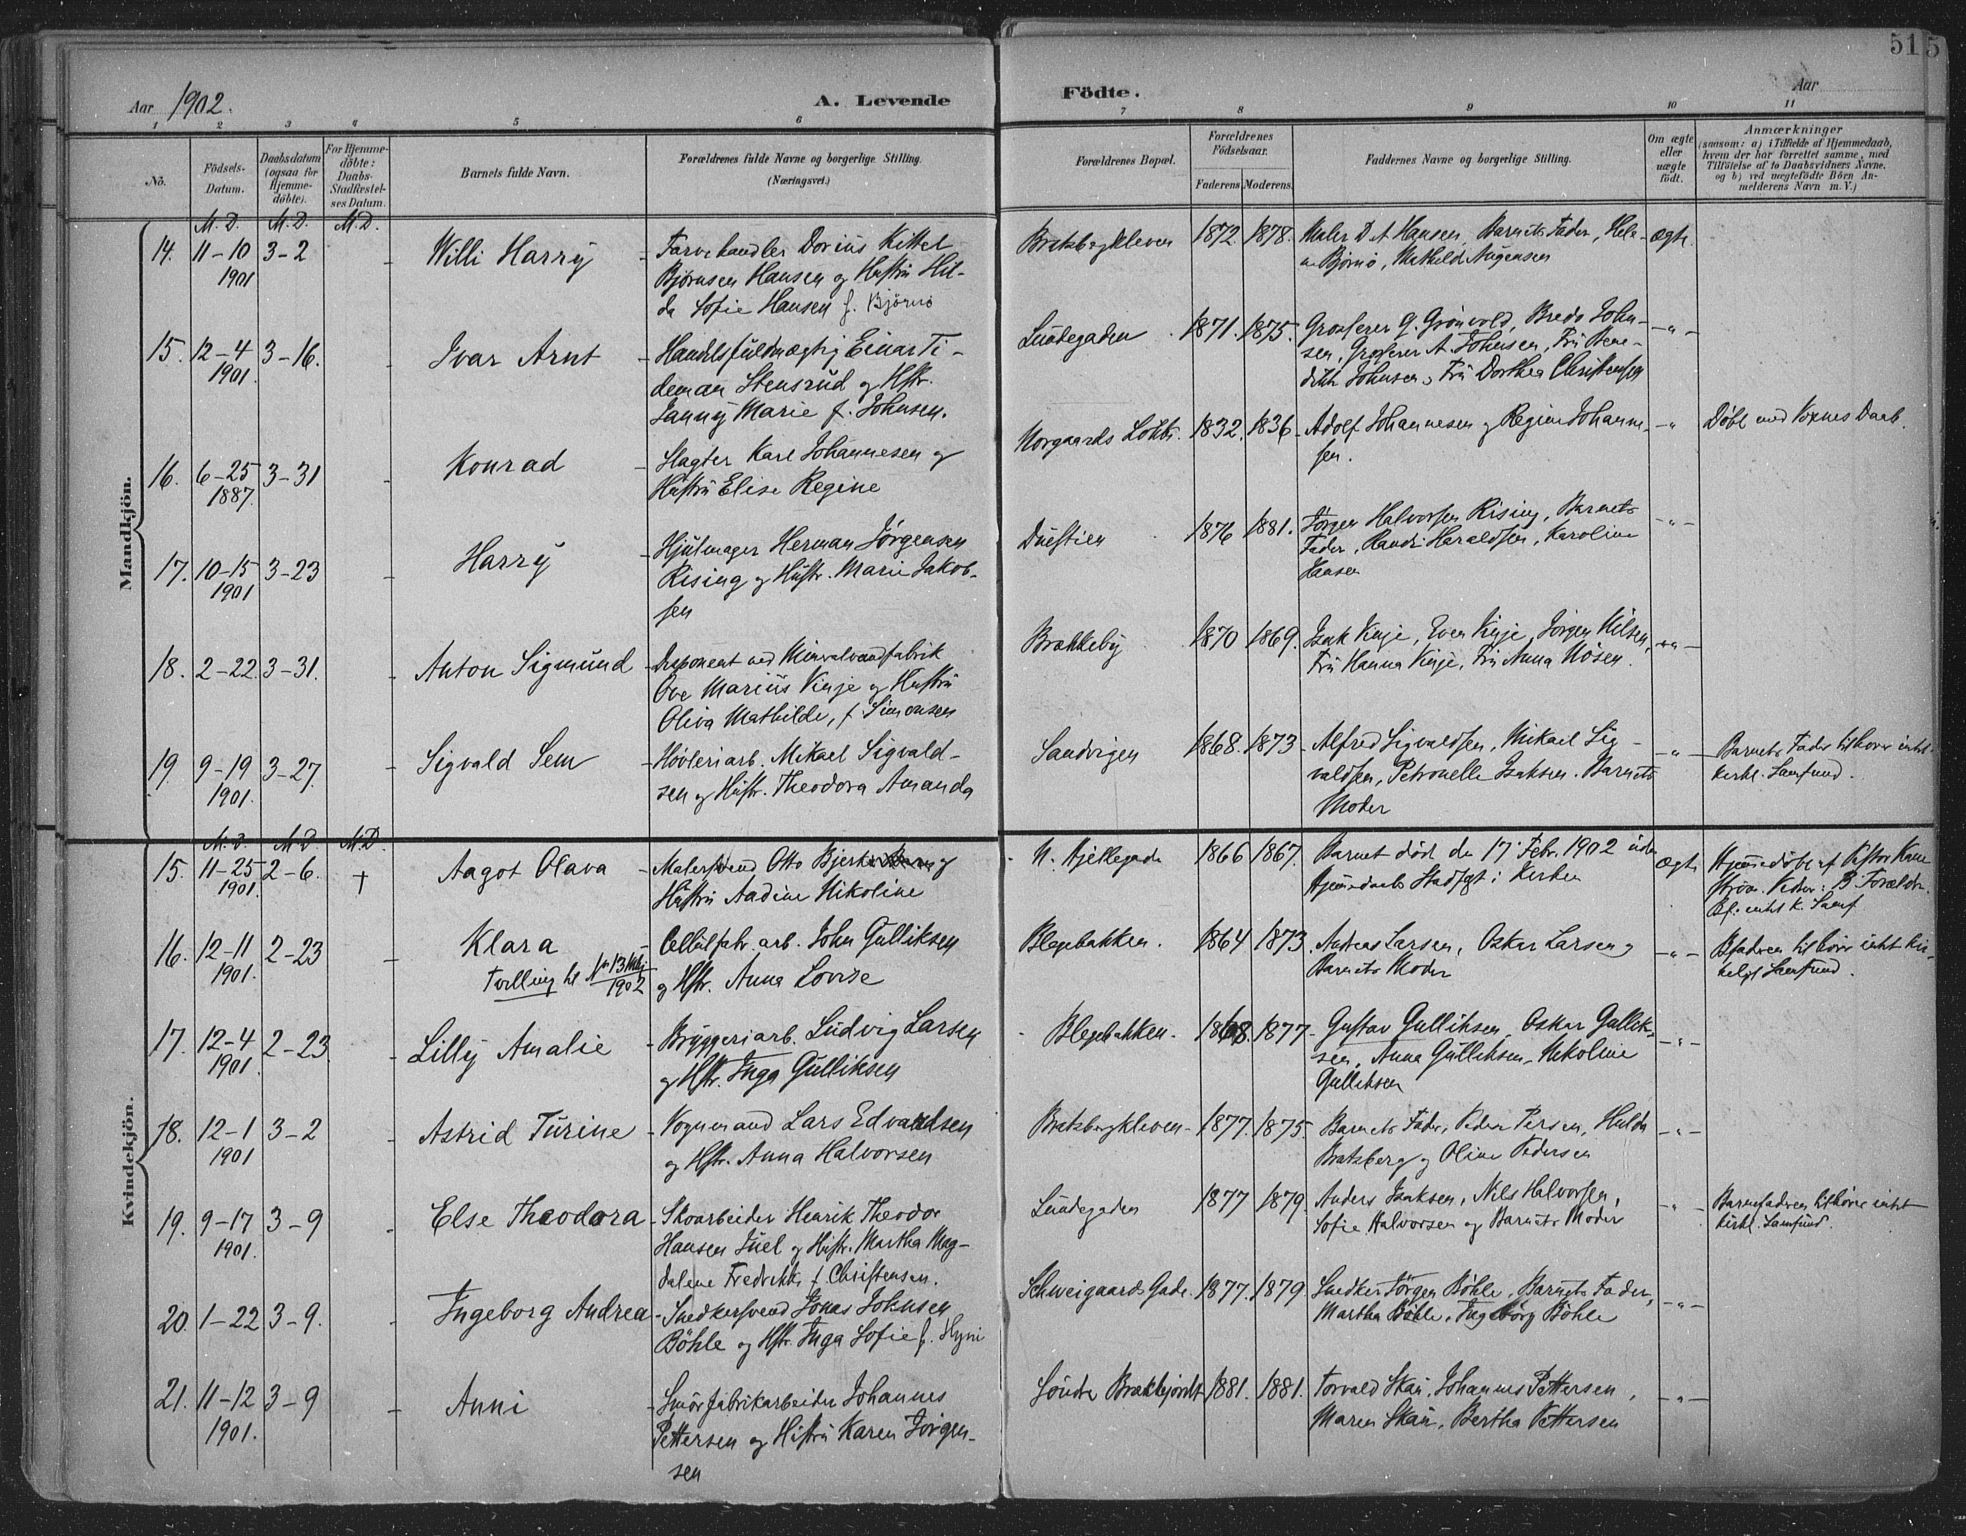 51 5
Aar 1902.
A. Levende
Födte.
Aar
1 2 3 4 5 6 7 8 9 10 11
No.
Födsels-Datum.
Daabsdatum (ogsaa for Hjemme-döbte).
For Hjemme-döbte: Daabs-Stadfæstel-ses Datum.
Barnets fulde Navn.
Forældrenes fulde Navne og borgerlige Stilling.
(Næringsvei.)
Forældrenes Bopæl.
Forældrenes Födselsaar.
Faderens Moderens.
Faddernes Navne og borgerlige Stilling.
Om ægte eller uægte födt.
Anmærkninger
(saasom: a) i Tilfælde af Hjemmedaab, hvem der har forrettet samme, med Tilföielse af to Daabsvidners Navne, og b) ved uægtefödte Börn An-melderens Navn m. V.)
Mandkjön.
M. D. M. D. M. D.
14. 11-10 1901 3-2 - Willi Harry
- Farvehandler Dorius Kittel
Bjørnsen Hansen og Hustru Hil-
da Sofie Hansen f. Björnö
Bratsbergkleven 1872. 1878.
Maler D. A. Hansen, Barnets Fader, Hele-
ne Björnö, Mathilde Augensen
ægte
15. 12-4 1901 3-16. - Ivar Arnt
- Handelsfuldmægtig Einar Ti-
deman Stensrud og Hstr.
Janny Marie f. Johnsen.
Lundegaden 1871. 1875.
Grosserer G. Grönvold, Bredo John-
sen, Grosserer A. Johnsen, Fru Bene-
dikte Johnsen, Fru Dorthea Christensen
-"-
16. 6-25 1887. 3-31 - Konrad
- Slagter Karl Johannesen og
Hustru Elise Regine
Norgaards Løkke. 1832. 1836.
Adolf Johannesen og Regine Johanne-
sen.
-"-
Døbt med Voxnes Daab.
17. 10-15 1901 3-23 - Harry
- Hjulmager Herman Jørgensen
Rising og Hustr. Marie Jakob-
sen
Duestien 1876 1881.
Jörgen Halvorsen Rising, Barnets
Fader, Haraldsen, Karoline
Hansen
-"-
18. 2-22 3-31. - Anton Sigmund
- Disponent ved Mineralvandfabrik
Ove Marius Vinje og Hustru
Oliva Mathilde, f. Simonsen
Brækkeby 1870 1869.
Isak Vinje, Even Vinje, Jörgen Nilsen,
Fru Hanna Vinje, Fru Anna Nösen.
-"-
19 9-19 1901. 3-27. Sigvald Sem
- Høvleriarb. Mikael Sigvald-
sen og Hustr. Theodora Amanda
Sandvigen 1868. 1873
Alfred Sigvaldsen, Mikael Sig-
valdsen, Petronelle Isaksen. Barnets
Moder
-"-
Barnets Fader tilhører intet
kirkl. Samfund.
Kvindekjön.
M. D. M. D. M. D.
15. 11-25 1901. 2-6. + Aagot Olava
- Malersvend Otto og
Hustru Aadine Nikoline
N. Hjellegade 1866 1867.
Barnet død den 17 Febr. 1902 uden
Hjemmedaabs Stadfgt i Kirken
ægte
Hjemmedøbt af
Forældr.
intet k. Samf.
16. 12-11 1901. 2-23 - Klara
Tvilling til Nr 13 Mkj 1902
- Cellulfabr. arb. John Gulliksen
og Hstr. Anna Lovise
Blegebakken. 1864 1873
Andreas Larsen, Oskar Larsen og
Barnets Moder
-"-
Bfaderen tilhører intet kir-
keligt Samfund.
17. 12-4 1901. 2-23 - Lilly Amalie
- Bryggeriarb. Ludvig Larsen
og Hstr. Inga Gulliksen
Blegebakken. 1868. 1877
Gustav Gulliksen, Oskar Gullik-
sen, Anna Gulliksen, Nikoline
Gulliksen
-"-
18. 12-1 1901 3-2 - Astrid Turine
- Vognmand Lars Edvardsen
og Hstr. Anna Halvorsen
Bratsbergkleven 1877. 1875.
Barnets Fader, Peder Persen, Hulda
Bratsberg og Oline Pedersen
-"-
19. 9-17 1901. 3-9 - Else Theodora
- Skoarbeider Henrik Theodor
Hansen Juel og Hustr. Martha Mag-
dalene Fredrikke f. Christensen.
Lundegaden 1877 1879.
Anders Isaksen, Nils Halvorsen,
Sofie Halvorsen og Barnets Moder
-"-
Barnefaderen tilhører intet
kirkl. Samfund.
20. 1-22 3-9. Ingeborg Andrea
- Snedkersvend Jonas Johnsen
Böhle og Hstr. Inga Sofie f. Hyni
Schweigaards Gade. 1877. 1879
Snedker Jörgen Böhle, Barnets Fader,
Martha Böhle, Ingeborg Böhle
-"-
21. 11-12 1901. 3-9 - Anni
- Smörfabrikarbeider Johannes
Pettersen og Hustru Karen Jörgen-
sen
Söndre Brækkejordet 1881. 1881.
Torvald Skau, Johannes Pettersen,
Maren Skau, Bertha Pettersen
-"-